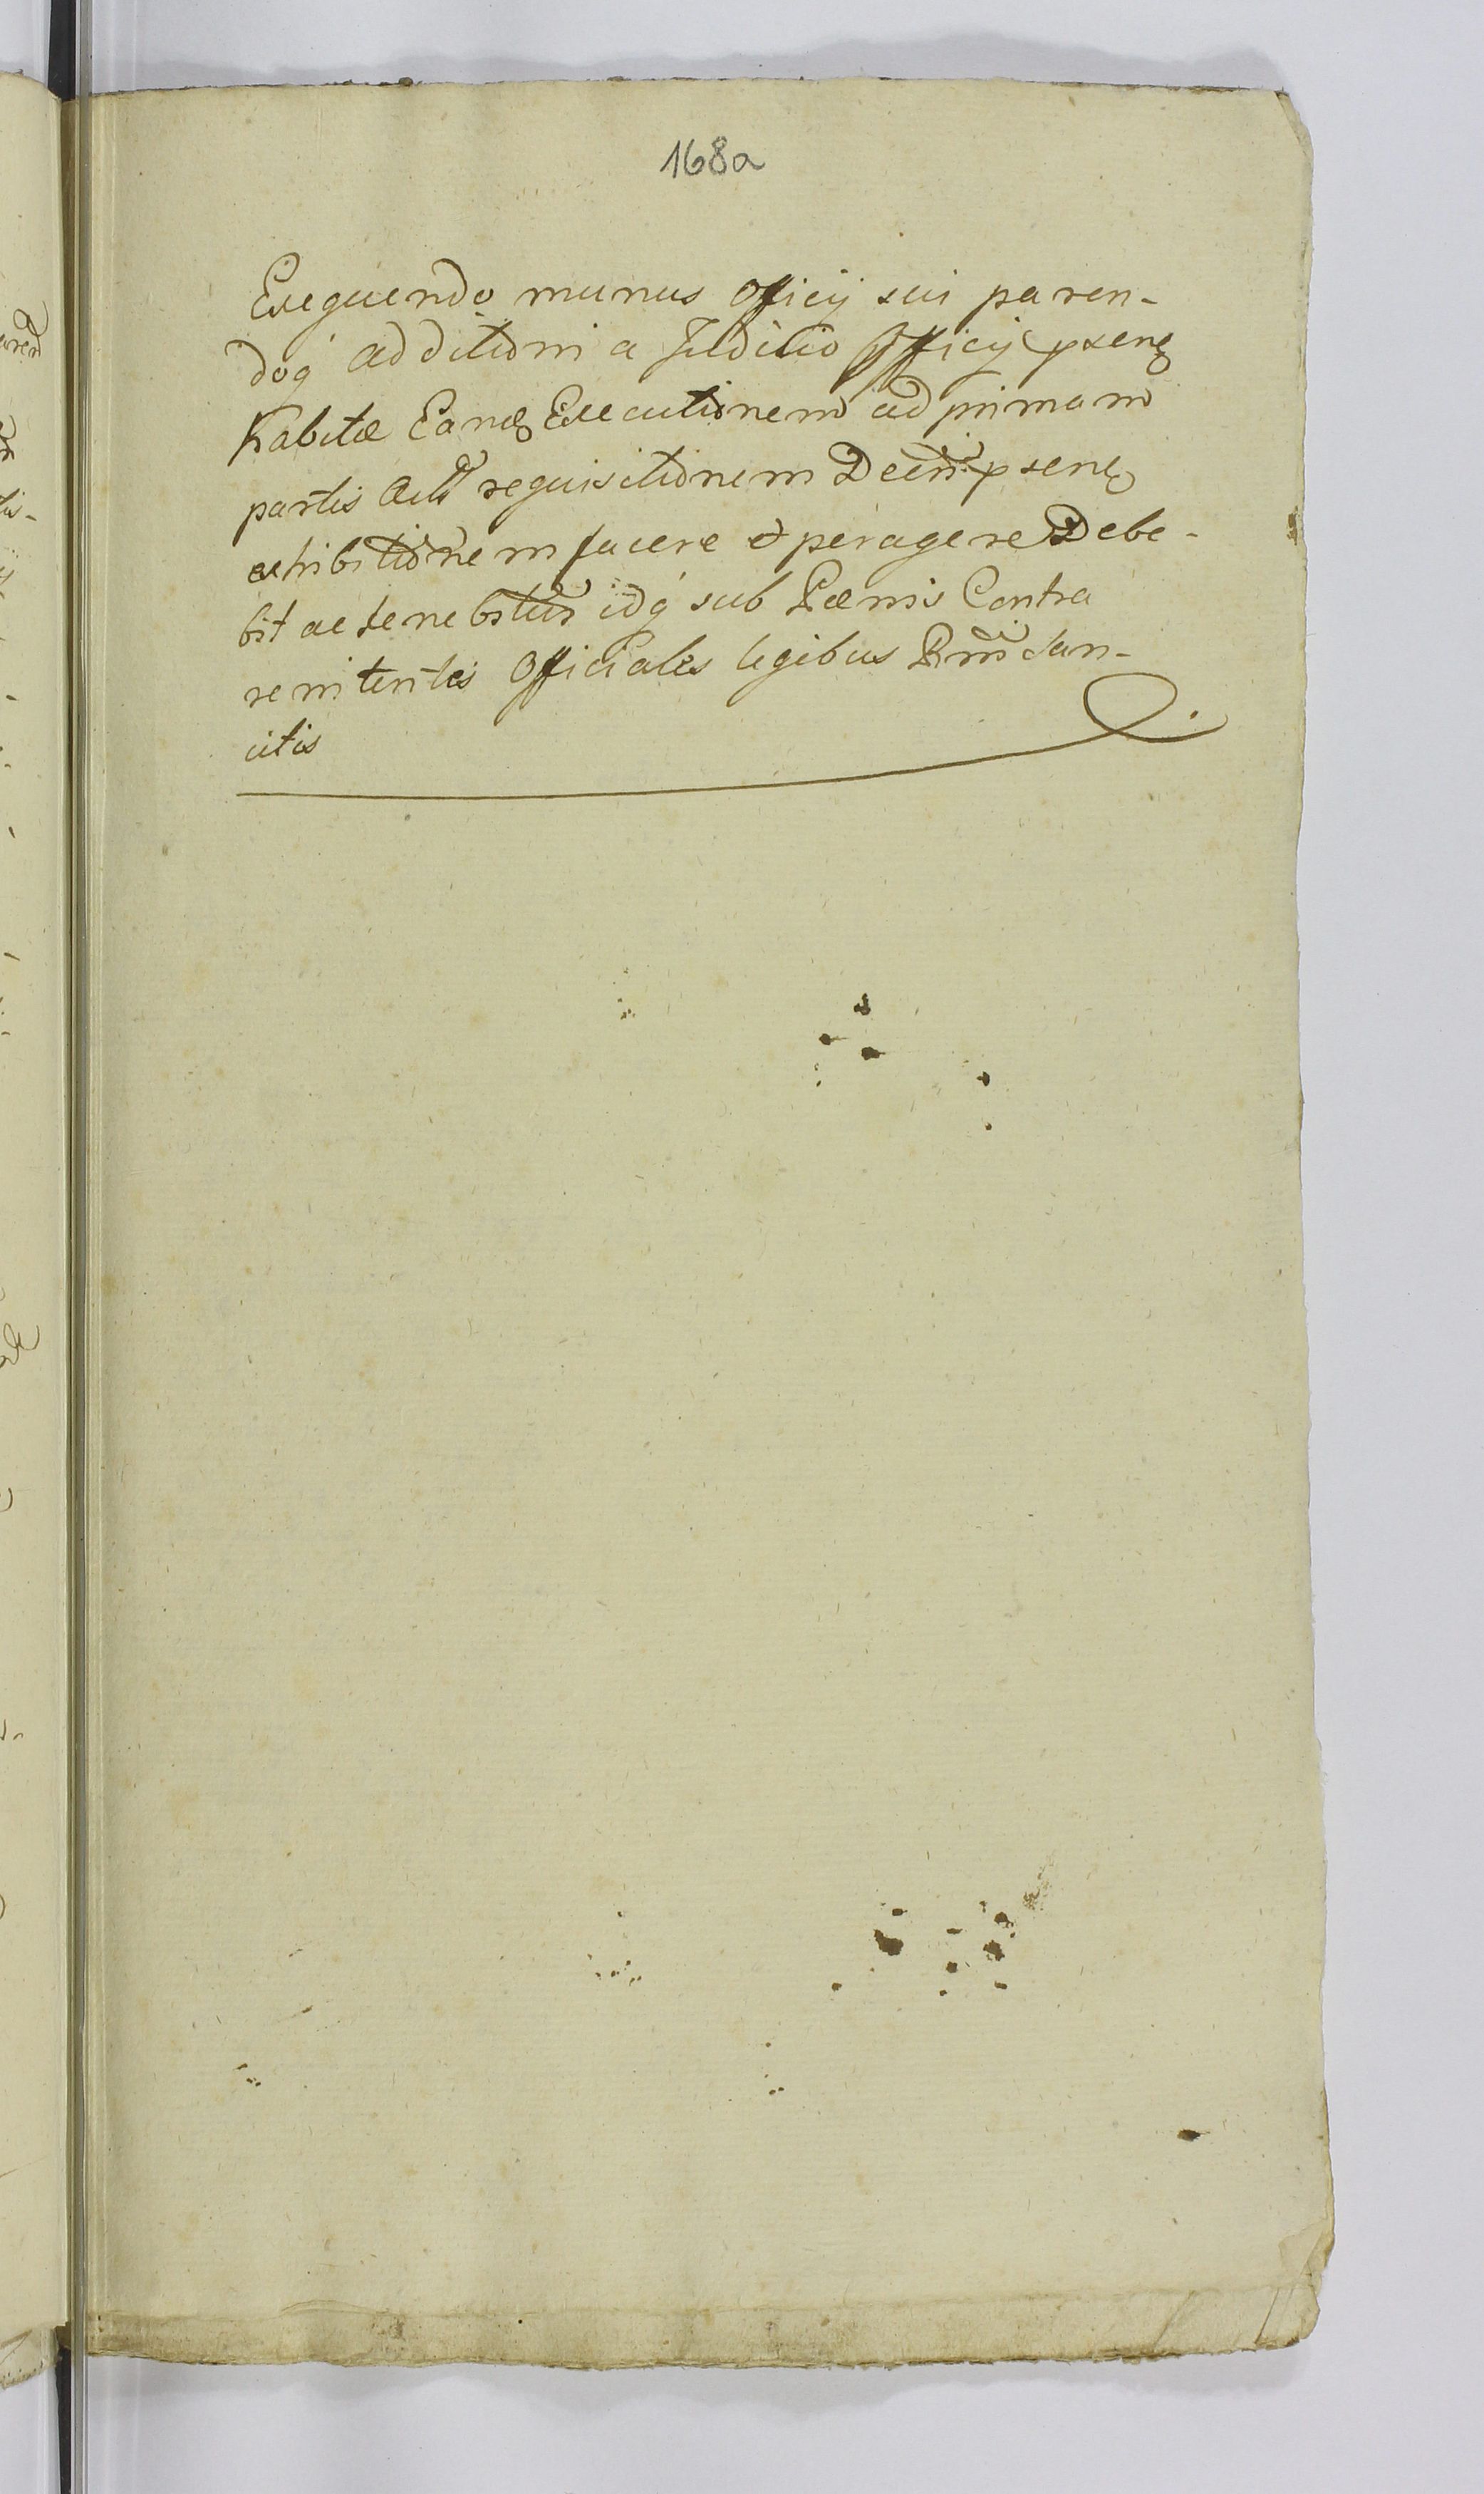 168a
Exequendo munus Officij sui paren-
doq́ additioni a Judicio Officij psenꝫ
habitæ Eandꝫ Executionem ad primam
partis requisitionem psenꝫ
exhibitionem facere et peragere Debe-
bit ac tenebitur idq́ sub Pœnis Contra
renitentes Officiales legibus Rñi San-
citis